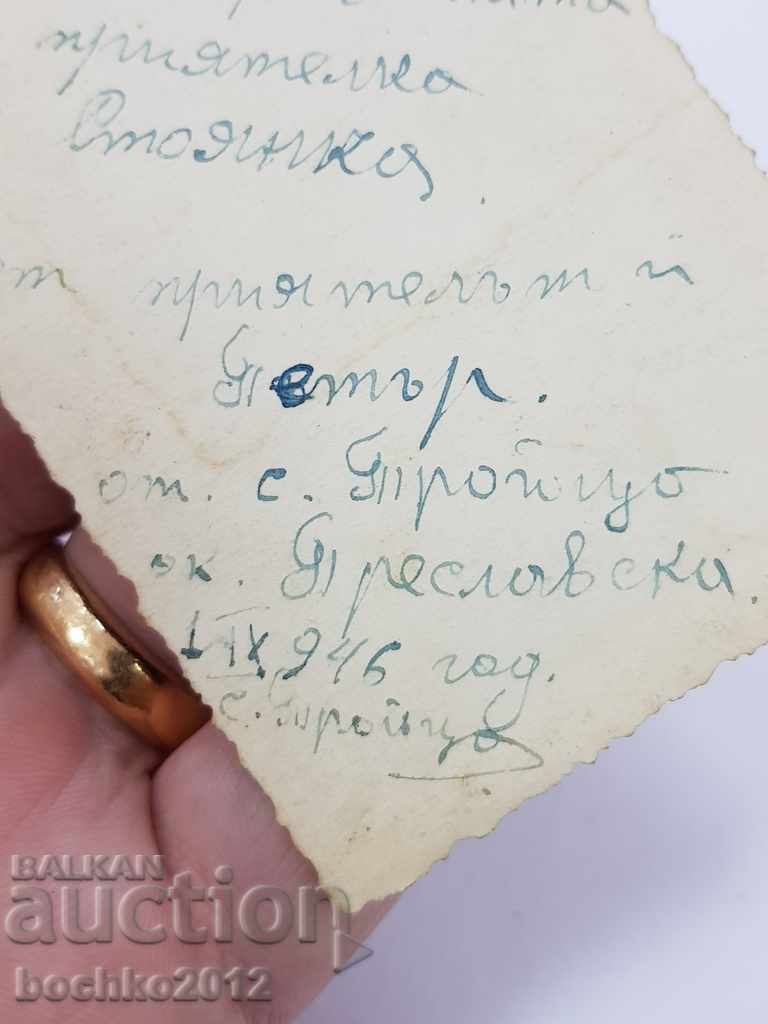 приятелка
Стоянка.
от приятелът й
Петър.
от. с. Тройцо
ок. Преславска.
1 IX 946 год.
с. Тройцо
BALKAN
auction
bochko2012